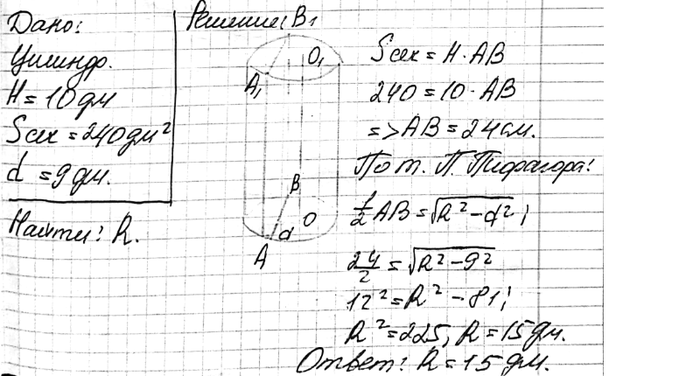 Дано:
Цилиндр.
H = 10 дм
Sсек = 240 дм²
d = 9 дм.
Найти: R.
Решение:
B₁
O₁
A₁
B
O
d
A
Sсек = H · AB
240 = 10 · AB
=> AB = 24 см.
По т. П. Пифагора:
½ AB = √(R² – d²);
24/2 = √(R² – 9²)
12² = R² – 81;
R² = 225, R = 15 дм.
Ответ: R = 15 дм.